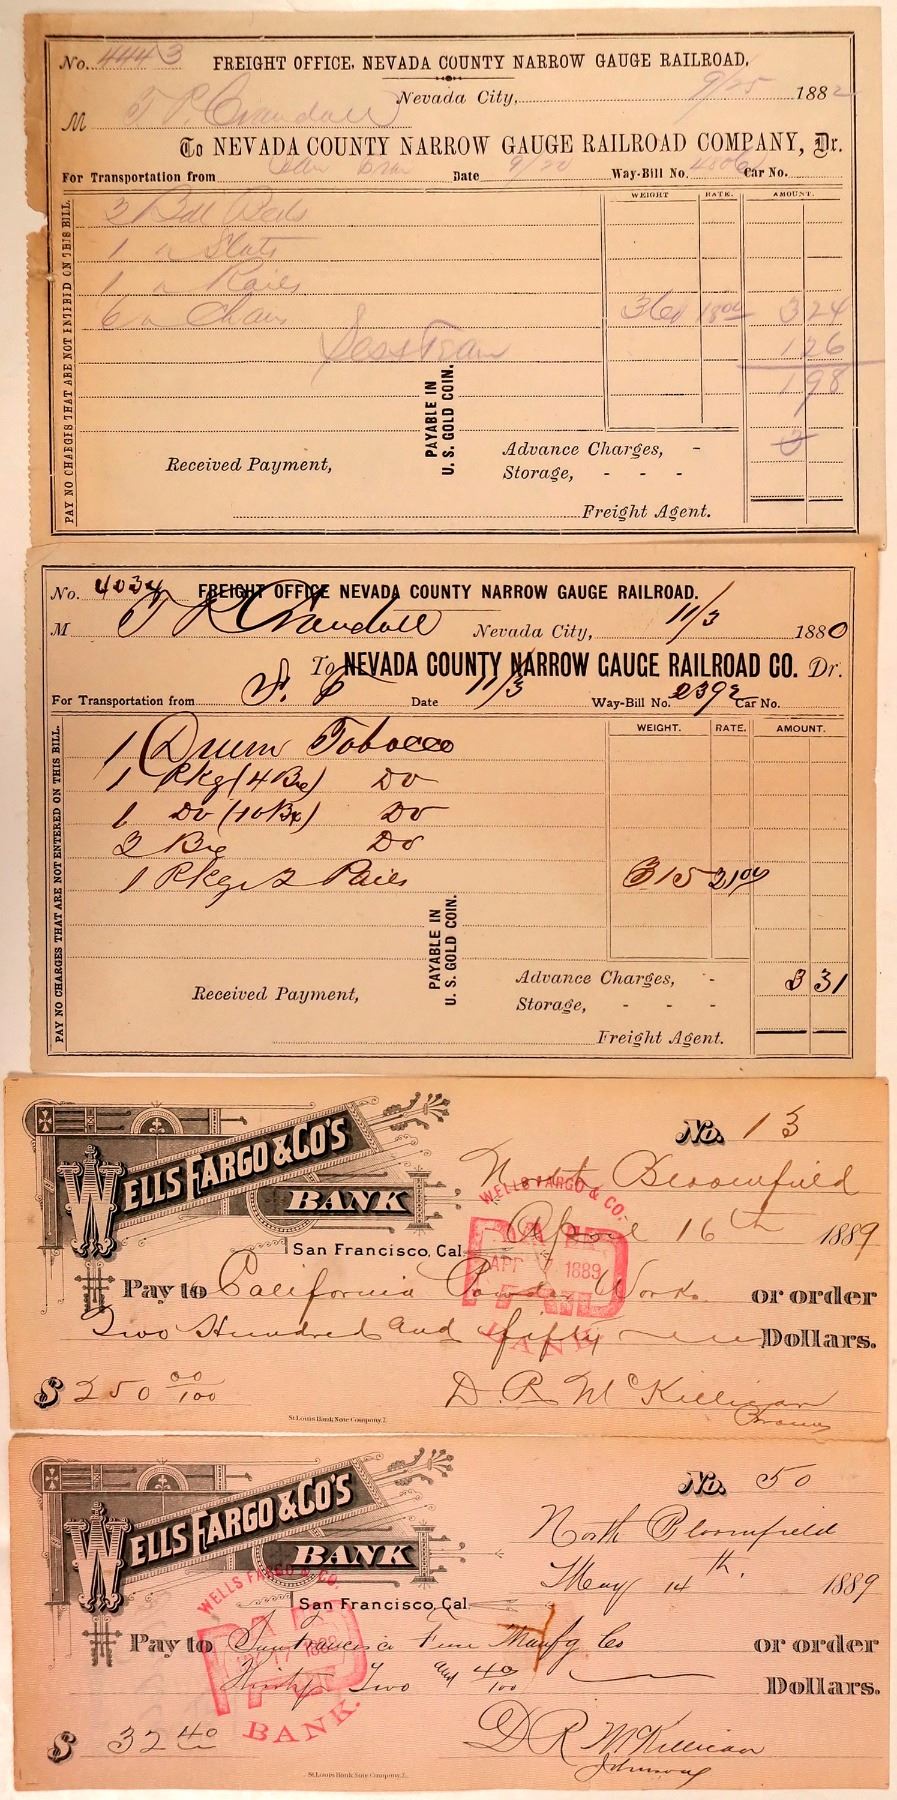 No. 4443 FREIGHT OFFICE, NEVADA COUNTY NARROW GAUGE RAILROAD.
Nevada City, 9/25 1882
M T P. Crandall
To NEVADA COUNTY NARROW GAUGE RAILROAD COMPANY, Dr.
For Transportation from Date 9/20 Way-Bill No. Car No.
WEIGHT RATE. AMOUNT.
3 Bdl Beds
1 " Slats
1 "
6 " Chairs 360 324
126
198
PAYABLE IN
U. S. GOLD COIN.
Advance Charges, -
Received Payment,
Storage, - - -
Freight Agent.
No. 4034 FREIGHT OFFICE NEVADA COUNTY NARROW GAUGE RAILROAD.
M T P Crandall Nevada City, 11/3 1880
To NEVADA COUNTY NARROW GAUGE RAILROAD CO. Dr.
For Transportation from S. F Date 11/3 Way-Bill No. 2392 Car No.
WEIGHT. RATE. AMOUNT.
1 Drum Tobacco
1 Pkg (4 Bx) Do
1 Do (10 Bx) Do
3 Bx Do
1 Pkge 2 Pails 315
PAY NO CHARGES THAT ARE NOT ENTERED ON THIS BILL.
PAYABLE IN
U. S. GOLD COIN.
Advance Charges, - 3 31
Received Payment,
Storage, - - -
Freight Agent.
WELLS FARGO & CO'S
BANK
San Francisco, Cal.
No. 13
North Bloomfield
April 16th 1889
WELLS FARGO & CO.
PAID
APR 1889
BANK
Pay to California Powder Works or order
Two Hundred and fifty Dollars.
$ 250 00/100
D. R. McKillican
St. Louis Bank Note Company.
WELLS FARGO & CO'S
BANK
San Francisco, Cal.
No. 50
North Bloomfield
May 14th. 1889
WELLS FARGO & CO.
BANK.
Pay to San Francisco Fuse Manfg Co or order
Thirty Two and 40/100 Dollars.
$ 32 40
D R McKillican
St. Louis Bank Note Company.